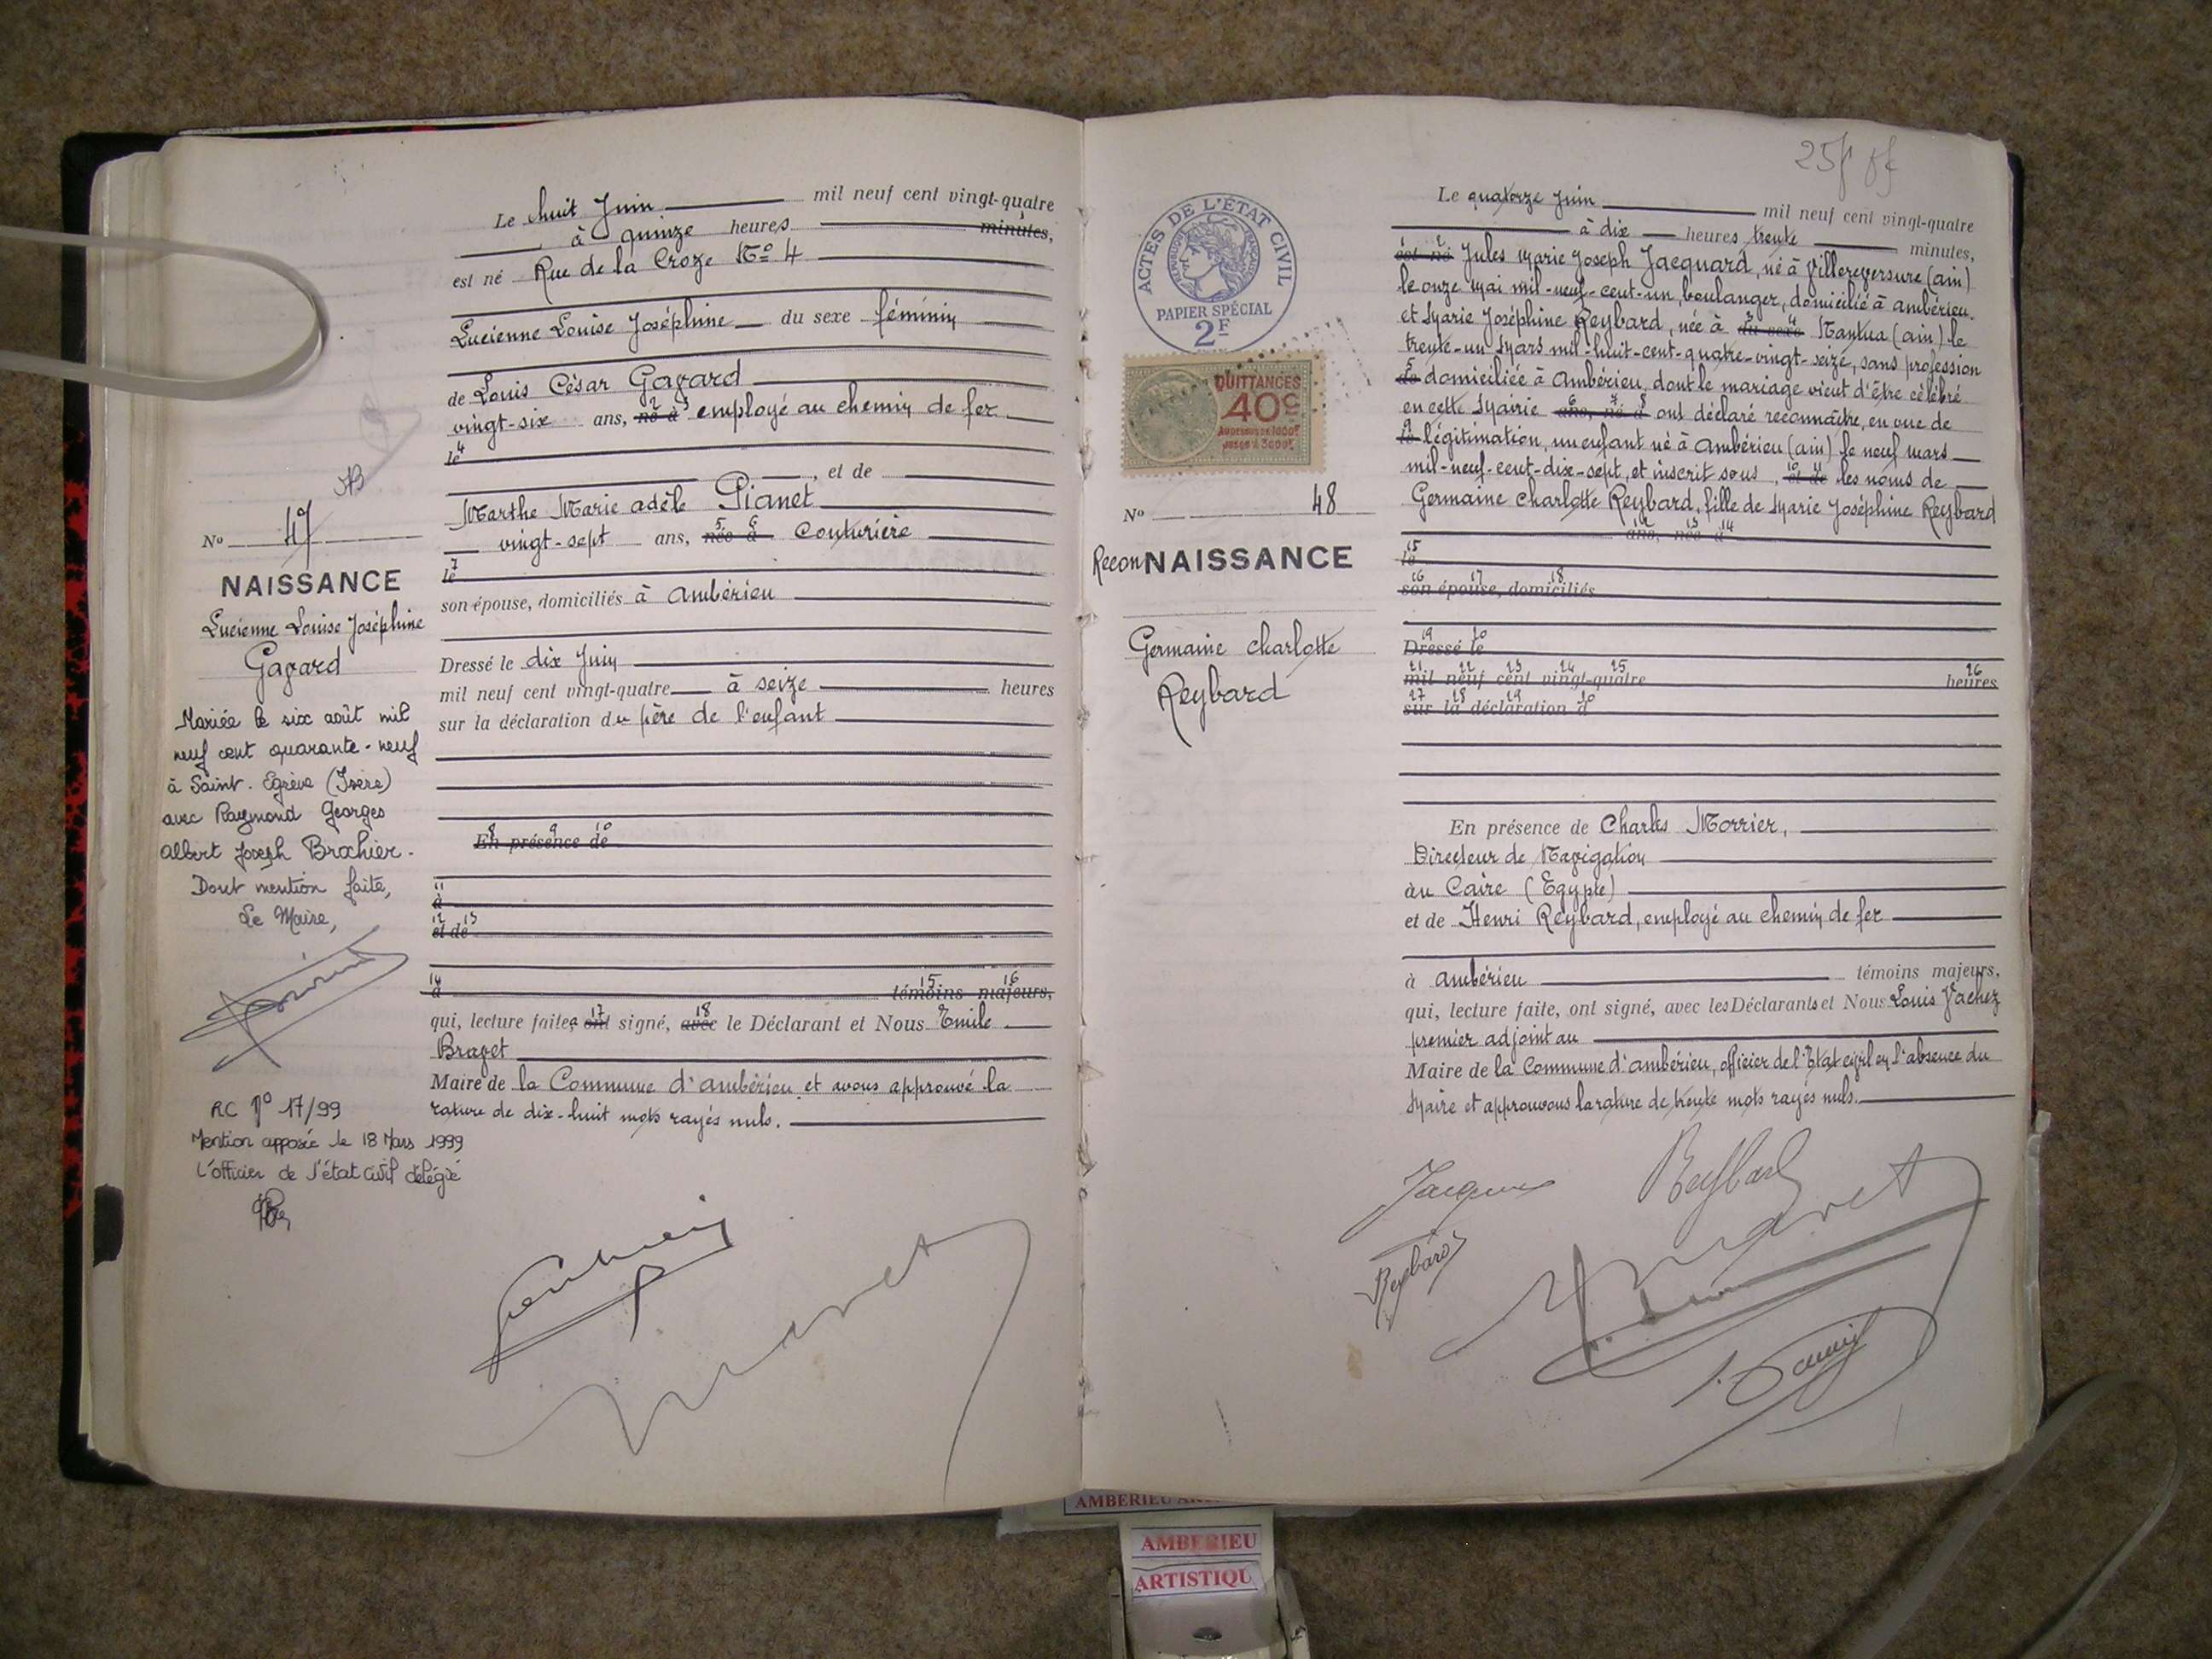 Le huit Juin mil neuf cent vingt-quatre
à quinze heures minutes,
est né Rue de la Croze No 4
Lucienne Louise Joséphine du sexe féminin
de Louis César Gavard
vingt-six ans, né à employé au chemin de fer
le
, et de
Marthe Marie adèle Pianet
vingt-sept ans, née à Couturière
le
son épouse, domiciliés à Ambérieu
Dressé le dix Juin
mil neuf cent vingt-quatre à seize heures
sur la déclaration du père de l'enfant
En présence de
à
et de
à témoins majeurs,
qui, lecture faite, ont signé, avec le Déclarant et Nous Emile
Bravet
Maire de la Commune d'Ambérieu et avons approuvé la
rature de dix-huit mots rayés nuls.
No 47
NAISSANCE
Lucienne Louise Joséphine
Gavard
Mariée le six août mil
neuf cent quarante-neuf
à Saint-Egrève (Isère)
avec Raymond Georges
Albert Joseph Brochier.
Dont mention faite,
Le Maire,
RC No 17/99
Mention apposée le 18 Mars 1999
L'officier de l'état civil délégué
ACTES DE L'ÉTAT CIVIL
RÉPUBLIQUE FRANÇAISE
PAPIER SPÉCIAL
2F
QUITTANCES
40c
No 48
ReconNAISSANCE
Germaine Charlotte
Reybard
Le quatorze Juin mil neuf cent vingt-quatre
à dix heures trente minutes,
est né Jules Marie Joseph Jacquard, né à Villereversure (ain)
le onze mai mil-neuf-cent-un, boulanger, domicilié à ambérieu
et Marie Joséphine Reybard, née à du sexe Nantua (ain) le
trente-un Mars mil-huit-cent-quatre-vingt-seize, sans profession
de domiciliée à Ambérieu, dont le mariage vient d'être célébré
en cette Mairie ans, né à ont déclaré reconnaître, en vue de
le légitimation, un enfant né à Ambérieu (ain) le neuf mars
mil-neuf-cent-dix-sept, et inscrit sous, et de les noms de
Germaine Charlotte Reybard, fille de Marie Joséphine Reybard
ans, née à
le
son épouse, domiciliés
Dressé le
mil neuf cent vingt-quatre heures
sur la déclaration d
En présence de Charles Morrier,
Directeur de Navigation
au Caire (Egypte)
et de Henri Reybard, employé au chemin de fer
à ambérieu témoins majeurs,
qui, lecture faite, ont signé, avec les Déclarants et Nous Louis Vachez
premier adjoint au
Maire de la Commune d'ambérieu, officier de l'Etat civil en l'absence du
Maire et approuvons la rature de trente mots rayés nuls.
Reybard
AMBERIEU
AMBERIEU
ARTISTIQU